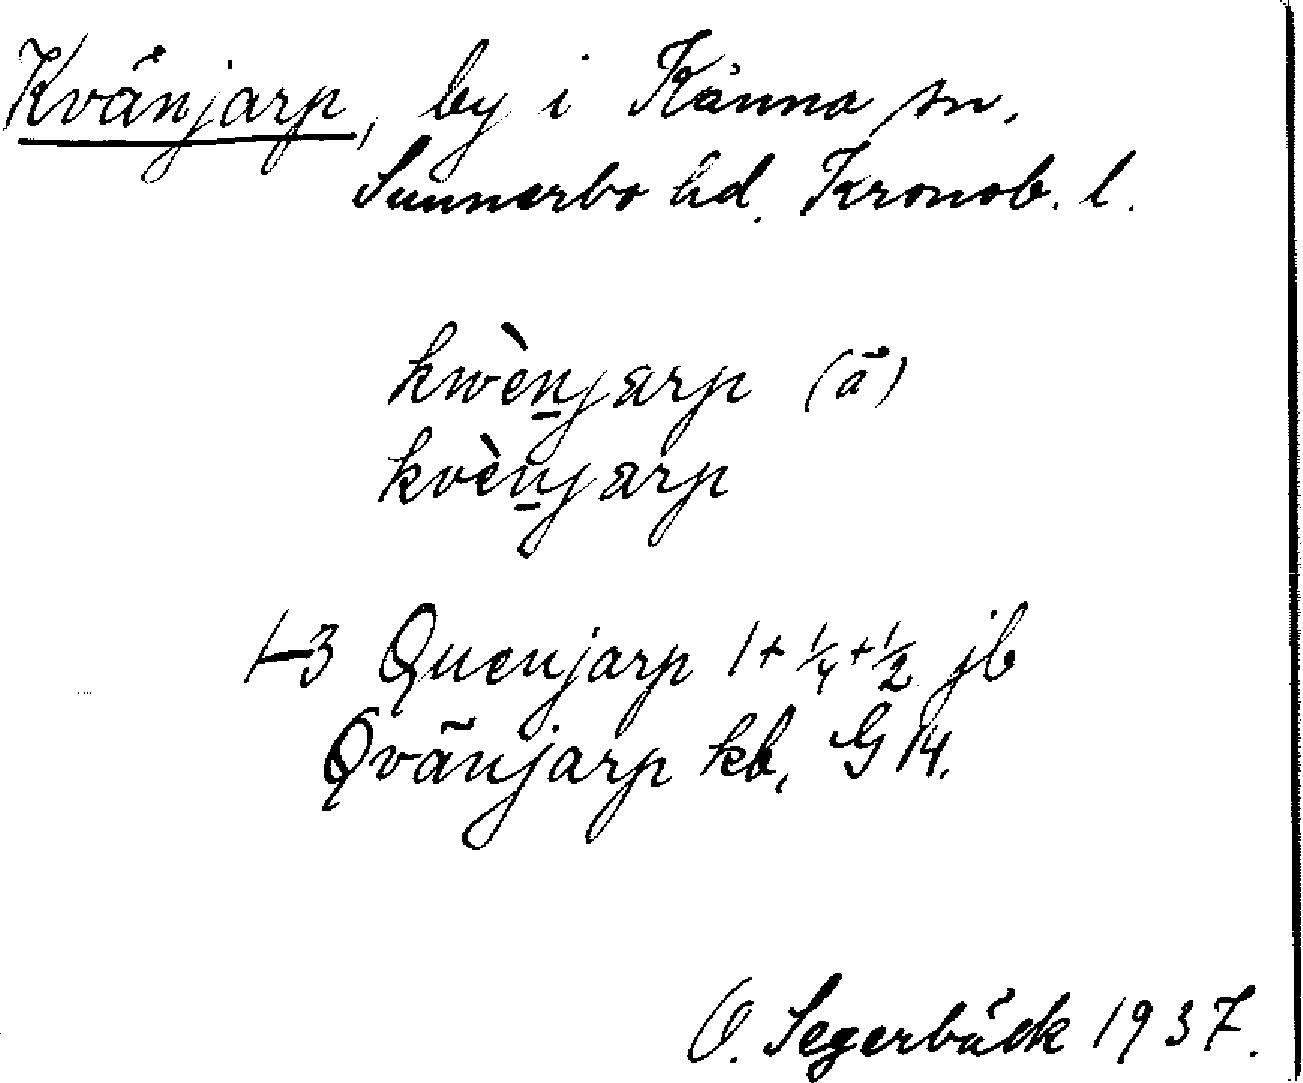 Kvänjarp, by i Kånna sn.
Sunnerbo hd. Kronob. l.
kwènjarp (ä)
kvènjarp
1-3 Quenjarp 1+1/4+1/2 jb
Qvänjarp kb, G 14.
O. Segerbäck 1937.